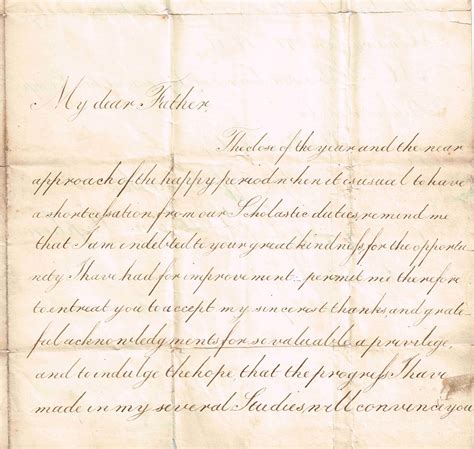 My dear Father,
The close of the year and the near
approach of the happy period when it is usual to have
a short cessation from our Scholastic duties, remind me
that I am indebted to your great kindness for the opportu-
nity I have had for improvement – permit me therefore
to entreat you to accept my sincerest thanks and grate-
ful acknowledgments for so valuable a privilege,
and to indulge the hope that the progress I have
made in my several Studies, will convince you